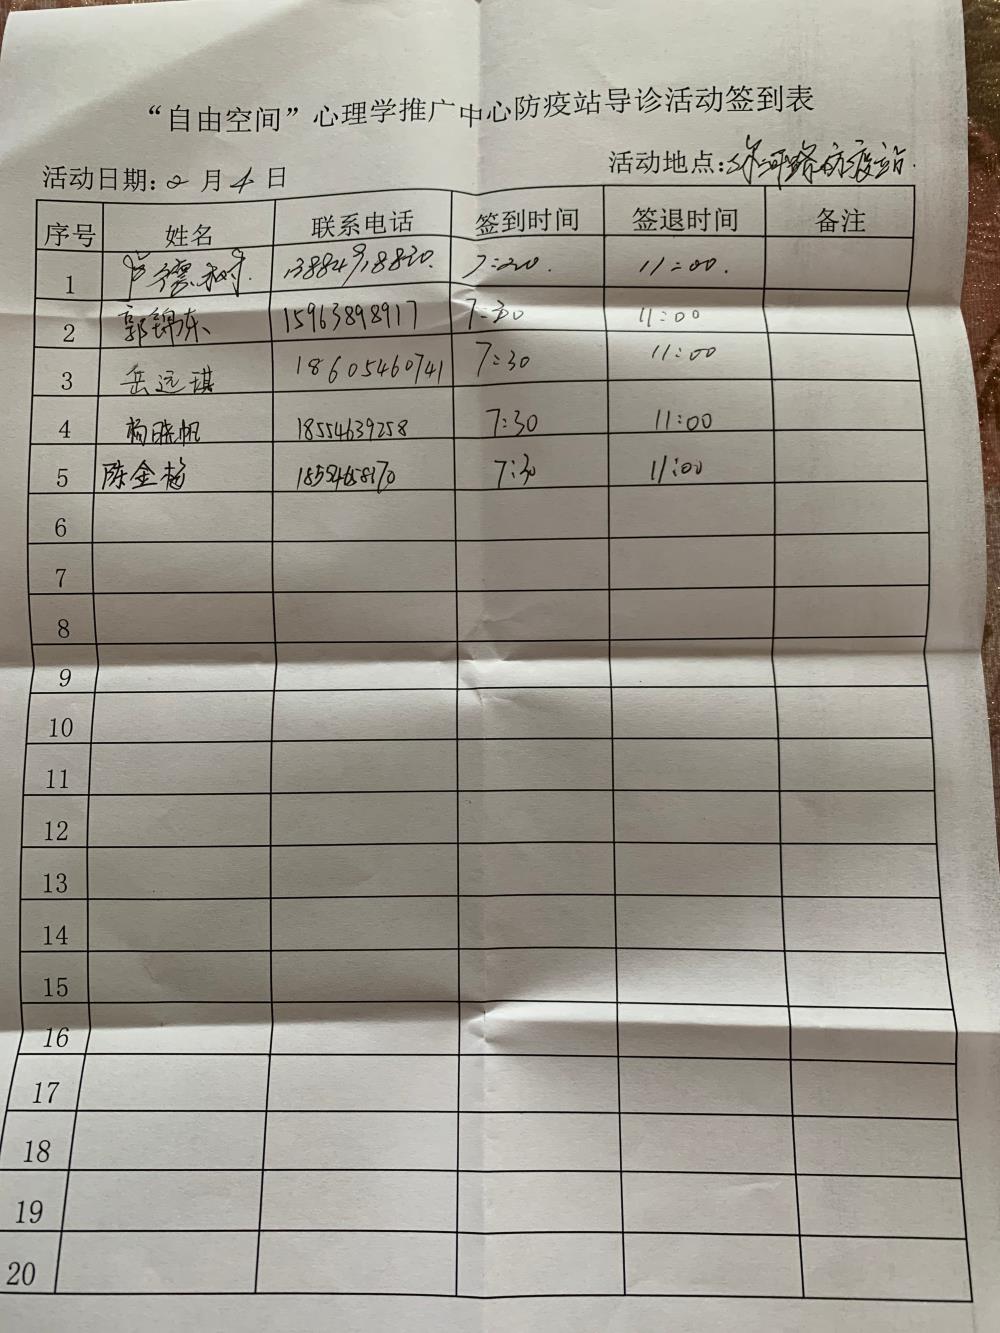 “自由空间”心理学推广中心防疫站导诊活动签到表
活动日期：2月4日 活动地点：防疫站.
序号 姓名 联系电话 签到时间 签退时间 备注
1 11:00.
2 郭锦东 15963898917 7:30 11:00
3 岳远琪 18605460741 7:30 11:00
4 杨晓帆 18554639258 7:30 11:00
5 陈金梅 7:30 11:00
6
7
8
9
10
11
12
13
14
15
16
17
18
19
20